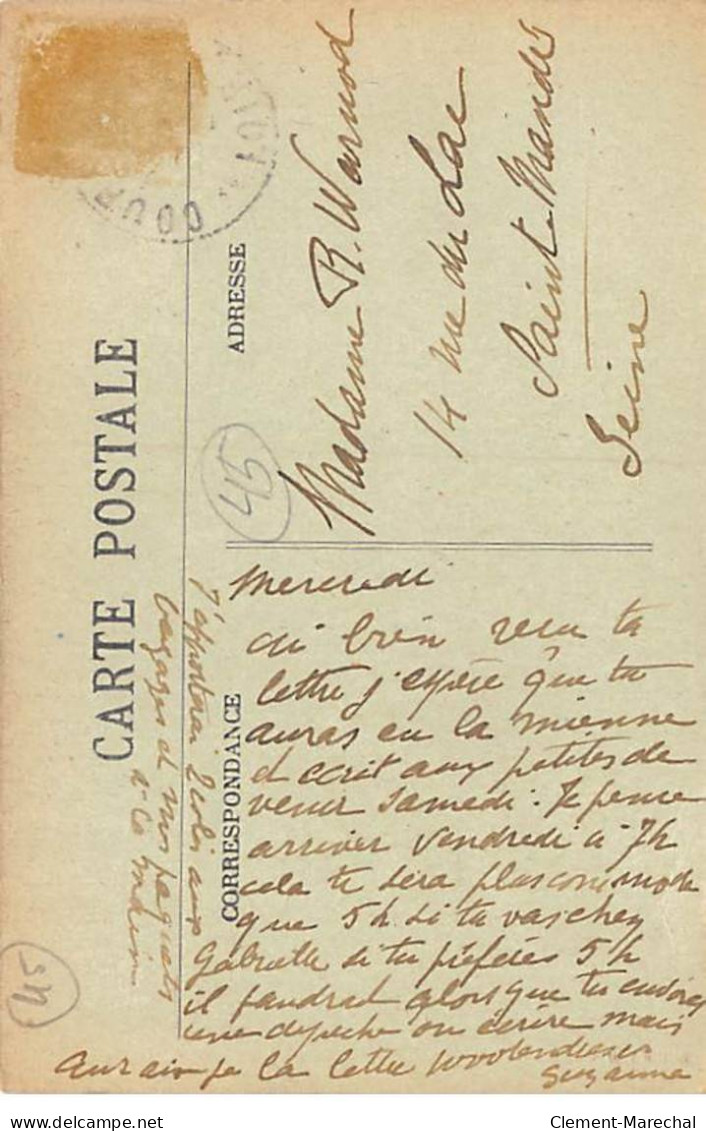 CARTE POSTALE
CORRESPONDANCE
ADRESSE
COUR
45
Madame R. Warnod
14 rue du Lac
Saint Mandé
Seine
Mercredi
ai bien recu ta
lettre j'espère que tu
auras eu la mienne
et écrit aux petites de
venir Samedi. Je pense
arriver Vendredi à 7h
cela te sera plus commode
que 5h si tu vas chez
Gabrielle si tu préfères 5h
il faudrait alors que tu envoies
une depeche ou écrire mais
aurai-je la lettre
Suzanne
J'apporterai 2 colis aux
bagages et mes paquets
a la main
45
delcampe.net
Clement-Marechal